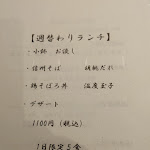 【週替わりランチ】
・小鉢 お浸し
・信州そば 胡桃だれ
・鶏そぼろ丼 温度玉子
・デザート
1100円（税込）
1日限定5食